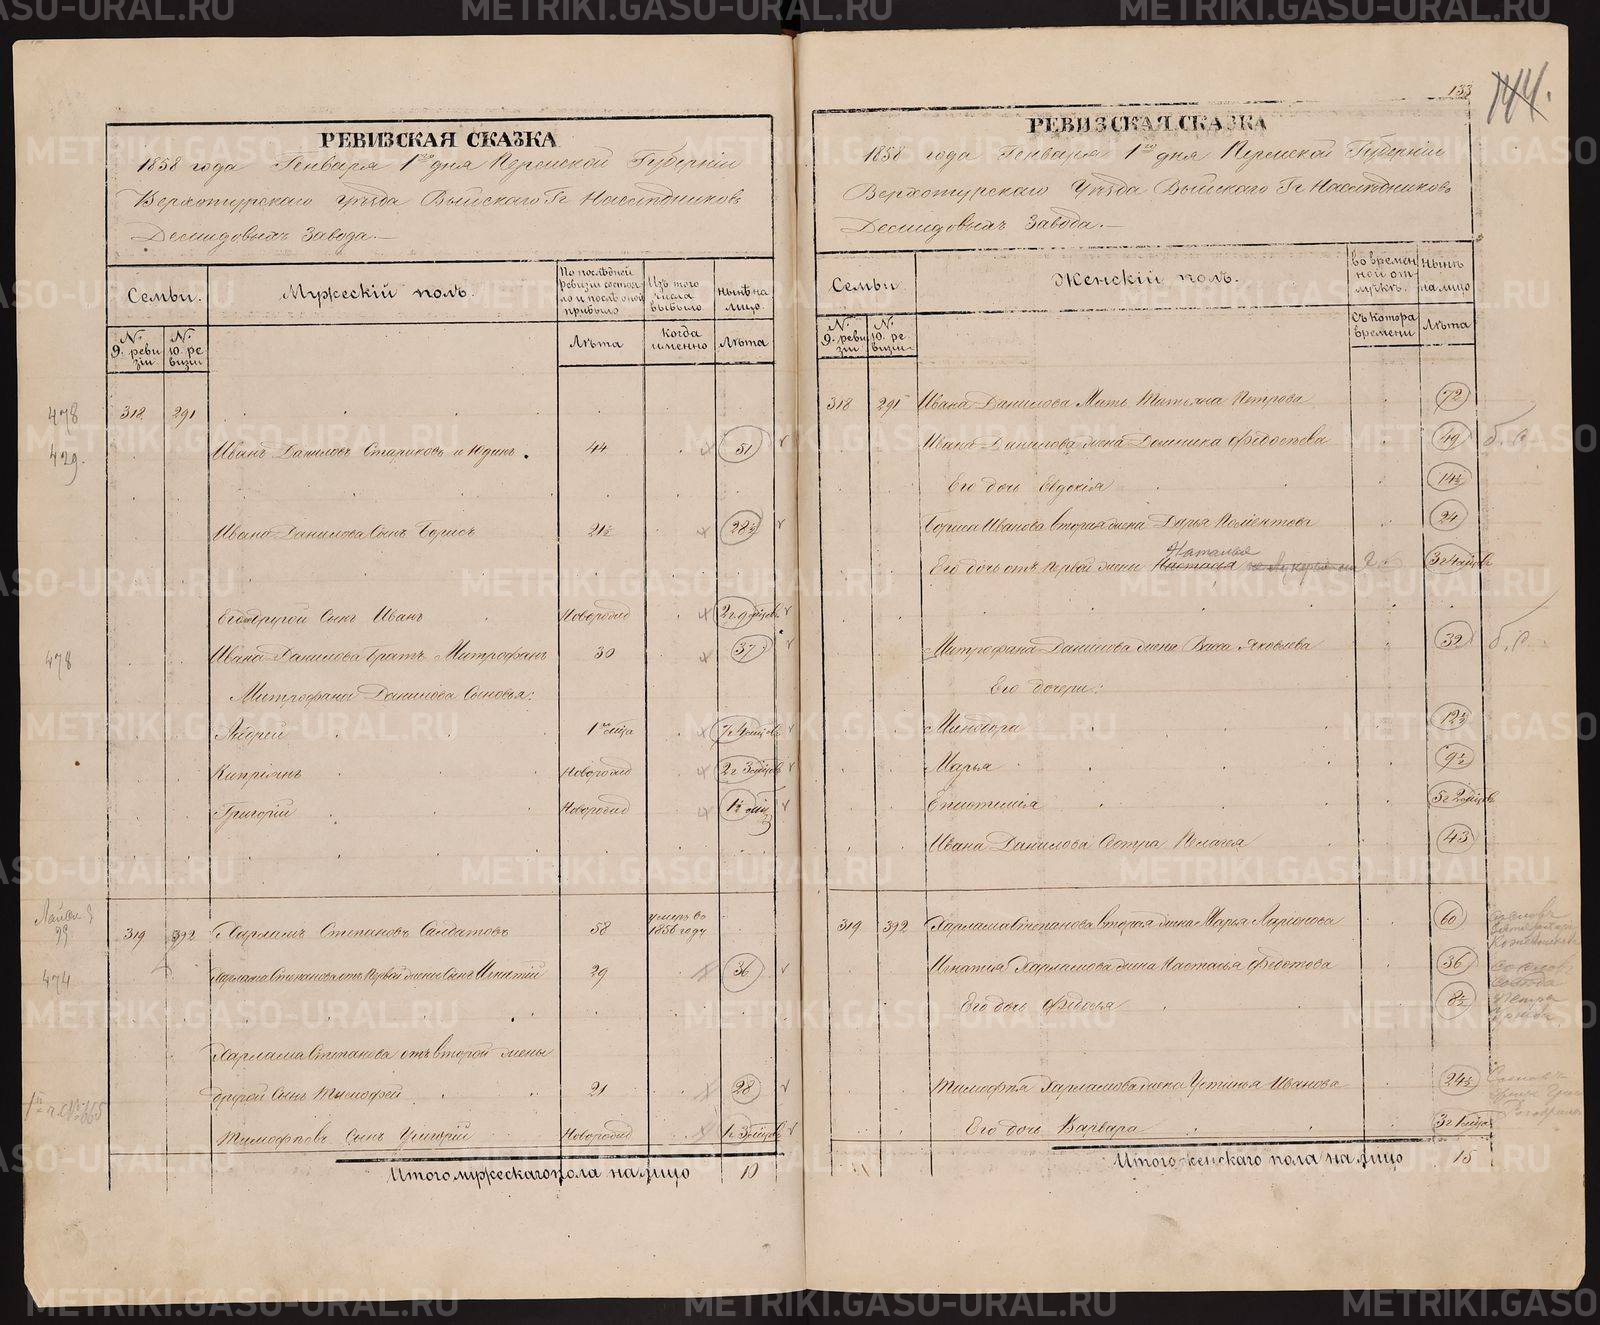 РЕВИЗСКАЯ СКАЗКА
1858 года Генваря 1го дня Пермской Губернiи
Верхотурскаго Уѣзда Выйскаго Гг Наслѣдниковъ
Демидовыхъ Завода.
Семьи.
Мужескiй полъ.
По послѣдней ревизiи состояло и послѣ оной прибыло
Изъ того числа выбыло
Нынѣ на лицо
№. 9. ревизiи
№. 10. ревизiи
Лѣта
Когда именно
Лѣта
478 318 291
429.
Иванъ Даниловъ Стариковъ и Юдинъ. 44 51
Ивана Данилова Сынъ Борисъ 21½ 28½
Его другой Сынъ Иванъ Новорожд 2г. 9 мцовъ
478 Ивана Данилова Братъ Митрофанъ 30 37
Митрофана Данилова Сыновья:
Андрей 1го мца 7г 4 мцовъ
Кипрiянъ Новорожд 2г 3 мцовъ
Григорiй Новорожд 1½ мца
319 392 Харламъ Степановъ Салдатовъ 58 умеръ во 1856 году
474 Харлама Степанова отъ первой жены Сынъ Игнатiй 29 36
Харлама Степанова отъ второй жены
другой Сынъ Тимофей 21 28
Тимофѣевъ Сынъ Григорiй Новорожд 1г 3 мцовъ
Итого мужескаго пола на лицо 10
133
144.
РЕВИЗСКАЯ СКАЗКА
1858 года Генваря 1го дня Пермской Губернiи
Верхотурскаго Уѣзда Выйскаго Гг Наслѣдниковъ
Демидовыхъ Завода.
Семьи
Женскiй полъ.
Во временной отлучкѣ.
Нынѣ на лицо
№. 9. ревизiи
№. 10. ревизiи
Съ котора времени
Лѣта
318 291 Ивана Данилова Мать Татьяна Петрова 72
Ивана Данилова жена Домника Федосѣева 49
Его дочь Евдокiя 14½
Бориса Иванова вторая жена Дарья Климентова 24
Наталья
Его дочь отъ первой жены Настасья 3г 4 мцовъ
Митрофана Данилова жена Васса Яковлева 32
Его дочери:
Минодора 12½
Марья 9½
Епистимiя 5г 2 мцовъ
Ивана Данилова Сестра Пелагея 43
319 392 Харлама Степанова вторая жена Марья Ларионова 60
Игнатiя Харламова жена Настасья Федотова 36
Его дочь Федосья 8½
Тимофѣя Харламова жена Устинья Иванова 24½
Его дочь Варвара 3г 1 мца
Итого женскаго пола на лицо 15
METRIKI.GASO-URAL.RU